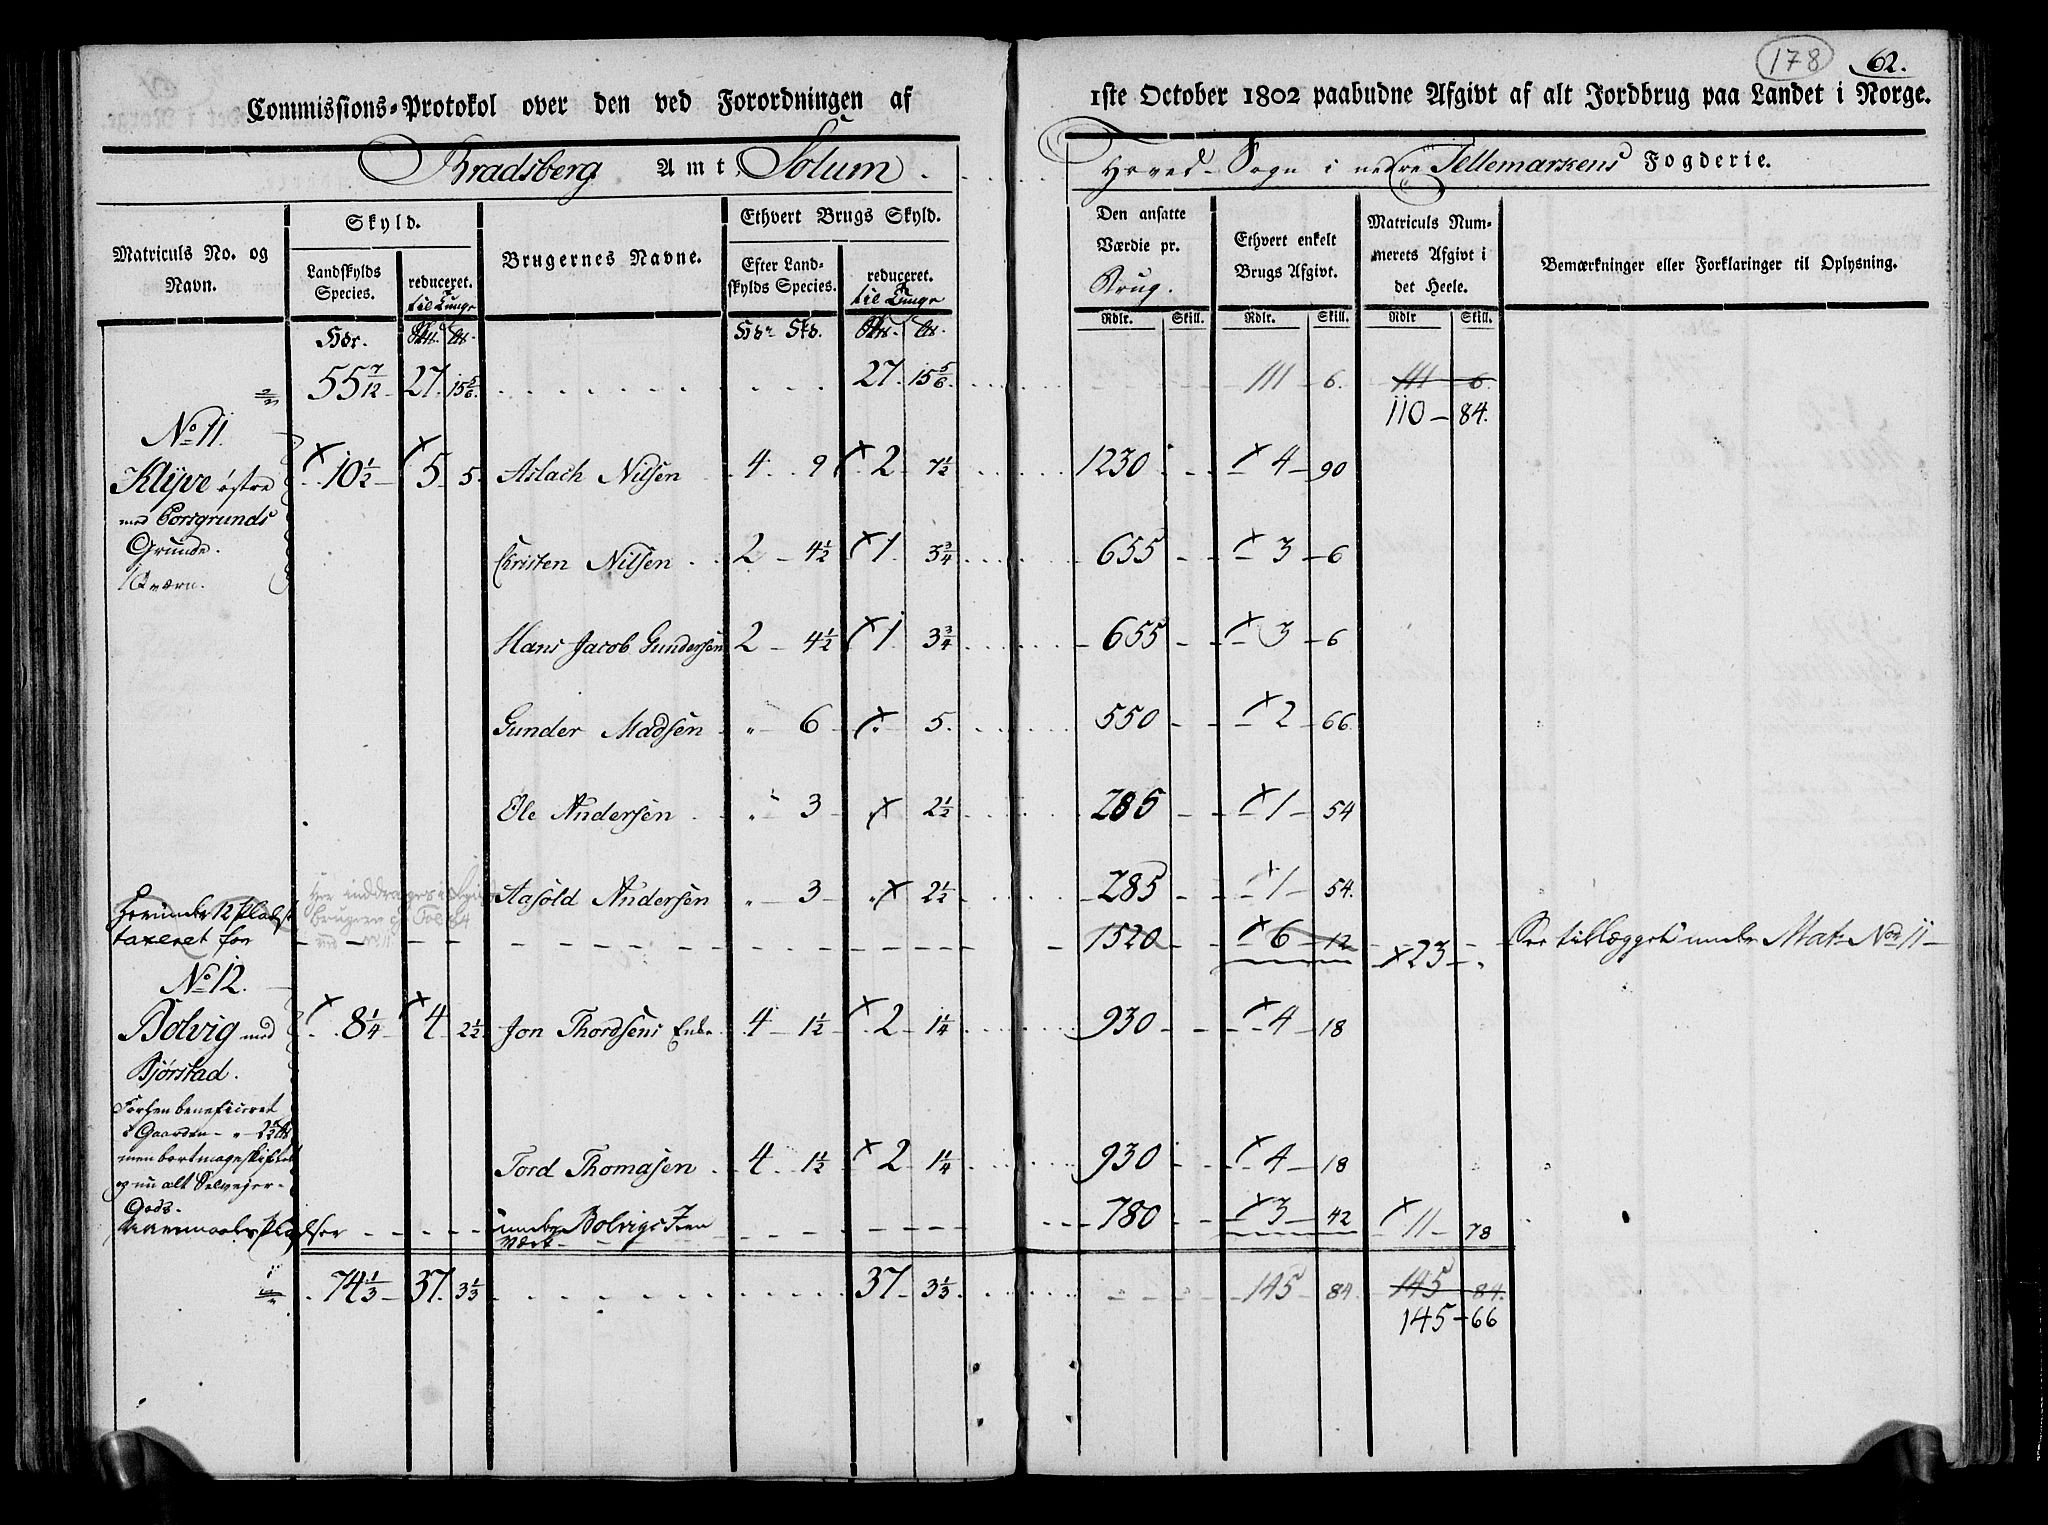 178 62.
Commissions-Protokol over den ved Forordningen af 1ste October 1802 paabudne Afgivt af alt Jordbrug paa Landet i Norge.
Bradsberg Amt Solum Hoved-Sogn i nedre Tellemarkens Fogderie.
Matriculs No. og Navn.
Skyld.
Landskylds Species.
reduceret. til Tunge
Brugernes Navne.
Ethvert Brugs Skyld.
Efter Landskylds Species.
reduceret. til Tunge
Den ansatte Værdie pr. Brug.
Ethvert enkelt Brugs Afgivt.
Matriculs Nummerets Afgivt i det Heele.
Bemærkninger eller Forklaringer til Oplysning.
Rdlr. Skill. Rdlr. Skill. Rdlr Skill.
55 7/12 27. 15 5/6. 27. 15 5/6. 111 6. 111 6.
110 84.
No 11.
Klyve østre 10 1/2 5 5. Aslach Nilsen 4 9 2 7 1/2 1230 4 90
med Porsgrunds
Grunde. Christen Nilsen 2 4 1/2 1. 3 3/4 655 3 6
1 Qværn.
Hans Jacob Gundersen 2 4 1/2 1. 3 3/4 655 3 6
Gunder Madsen " 6 " 5. 550 2 66
Ole Andersen " 3 " 2 1/2 285 1 54
Aasold Andersen " 3 " 2 1/2 285 1 54.
herunder 12 Pladse
taxeret for 1520 6 12 23 " See tillægget under Mat: No 11
No 12.
Bolvig med 8 1/4 4 2 1/2 Jon Thordsens Enke 4 1 1/2 2 1 1/4 930 4 18
Bjørstad.
Forhen beneficeret
i Gaarden " 2 1/2
men bortmageskiftet
og nu alt Selvejer-
Gods.
Tord Thomasen 4 1 1/2 2 1 1/4 930 4 18
under Bolvigs Jern
Værk 780 3 42 11 78
74 1/3 37. 3 1/3 37 3 1/3 145 84. 145 84.
145 66